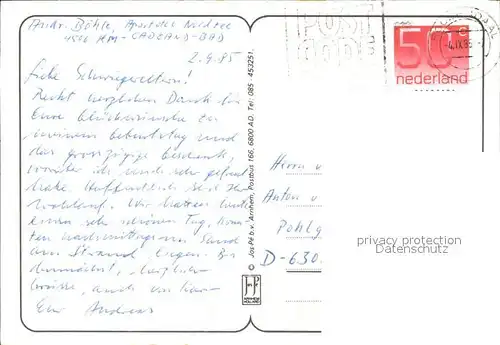 Andr. Böhle,
4506 HM - CADZAND-BAD
2.9.85
Liebe Schwiegereltern!
Recht herzlichen Dank für
Eure Glückwünsche zu
meinem Geburtstag und
das grosszügige Geschenk,
worüber ich mich sehr gefreut
habe. Hoffentlich seid Ihr
wohlauf. Wir hatten heute
einen sehr schönen Tag, konn-
ten nachmittags am Sand
am Strand liegen. Bis
demnächst, herzliche
Grüsse, auch von
Euer Andreas
© JosPé b.v. Arnhem, Postbus 166, 6800 AD. Tel.: 085 - 453251.
JosPé
ARNHEM
HOLLAND
POST
CODE
-4.IX.85
50ct
nederland
Herrn u
Anton v
Pohlg
D-630
privacy protection
Datenschutz